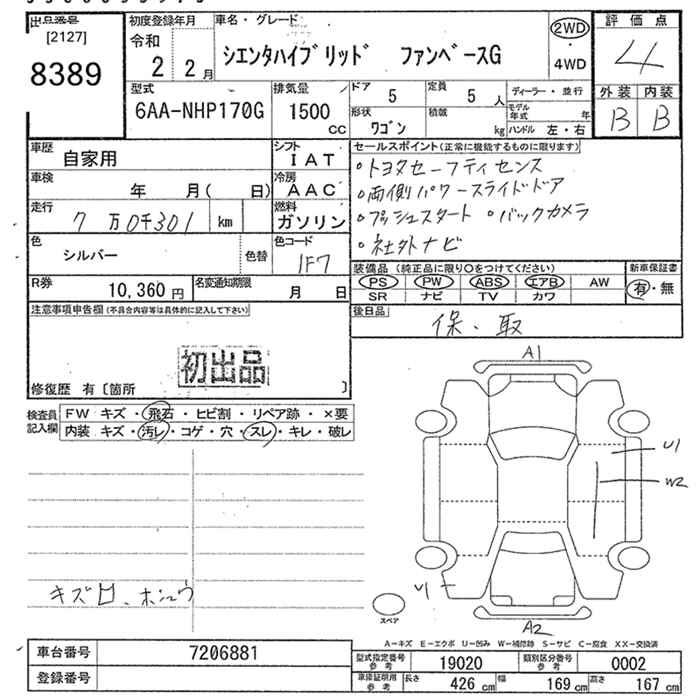 出品番号
[2127]
8389
初度登録年月
令和
2 2月
車名・グレード
シエンタハイブリッド ファンベースG
2WD
・
4WD
評価点
4
外装 内装
B B
型式
6AA-NHP170G
排気量
1500
cc
ドア
5
定員
5 人
ディーラー・並行
形状
ワゴン
積載
kg
モデル年式 年
ハンドル 左・右
車歴
自家用
シフト
IAT
車検
年 月( 日)
冷房
AAC
走行
7万0千301 km
燃料
ガソリン
色
シルバー
色替
色コード
1F7
R券
10,360 円
名変通知期限
月 日
セールスポイント(正常に機能するものに限ります)
。トヨタセーフティセンス
。両側パワースライドドア
。プッシュスタート 。バックカメラ
。社外ナビ
装備品 (純正品に限り〇をつけてください)
PS PW ABS エアB AW
SR ナビ TV カワ
新車保証書
有・無
後日品
保・取
注意事項申告欄(不具合内容等は具体的に記入して下さい)
初出品
修復歴 有〔箇所 〕
検査員記入欄
FW キズ・飛石・ヒビ割・リペア跡・×要
内装 キズ・汚レ・コゲ・穴・スレ・キレ・破レ
A1
U1
W2
U1
A2
スペア
A-キズ E-エクボ U-凹み W-補修跡 S-サビ C-腐食 XX-交換済
車台番号
7206881
登録番号
型式指定番号参考
19020
類別区分番号参考
0002
車庫証明用参考
長さ 426 cm 幅 169 cm 高さ 167 cm